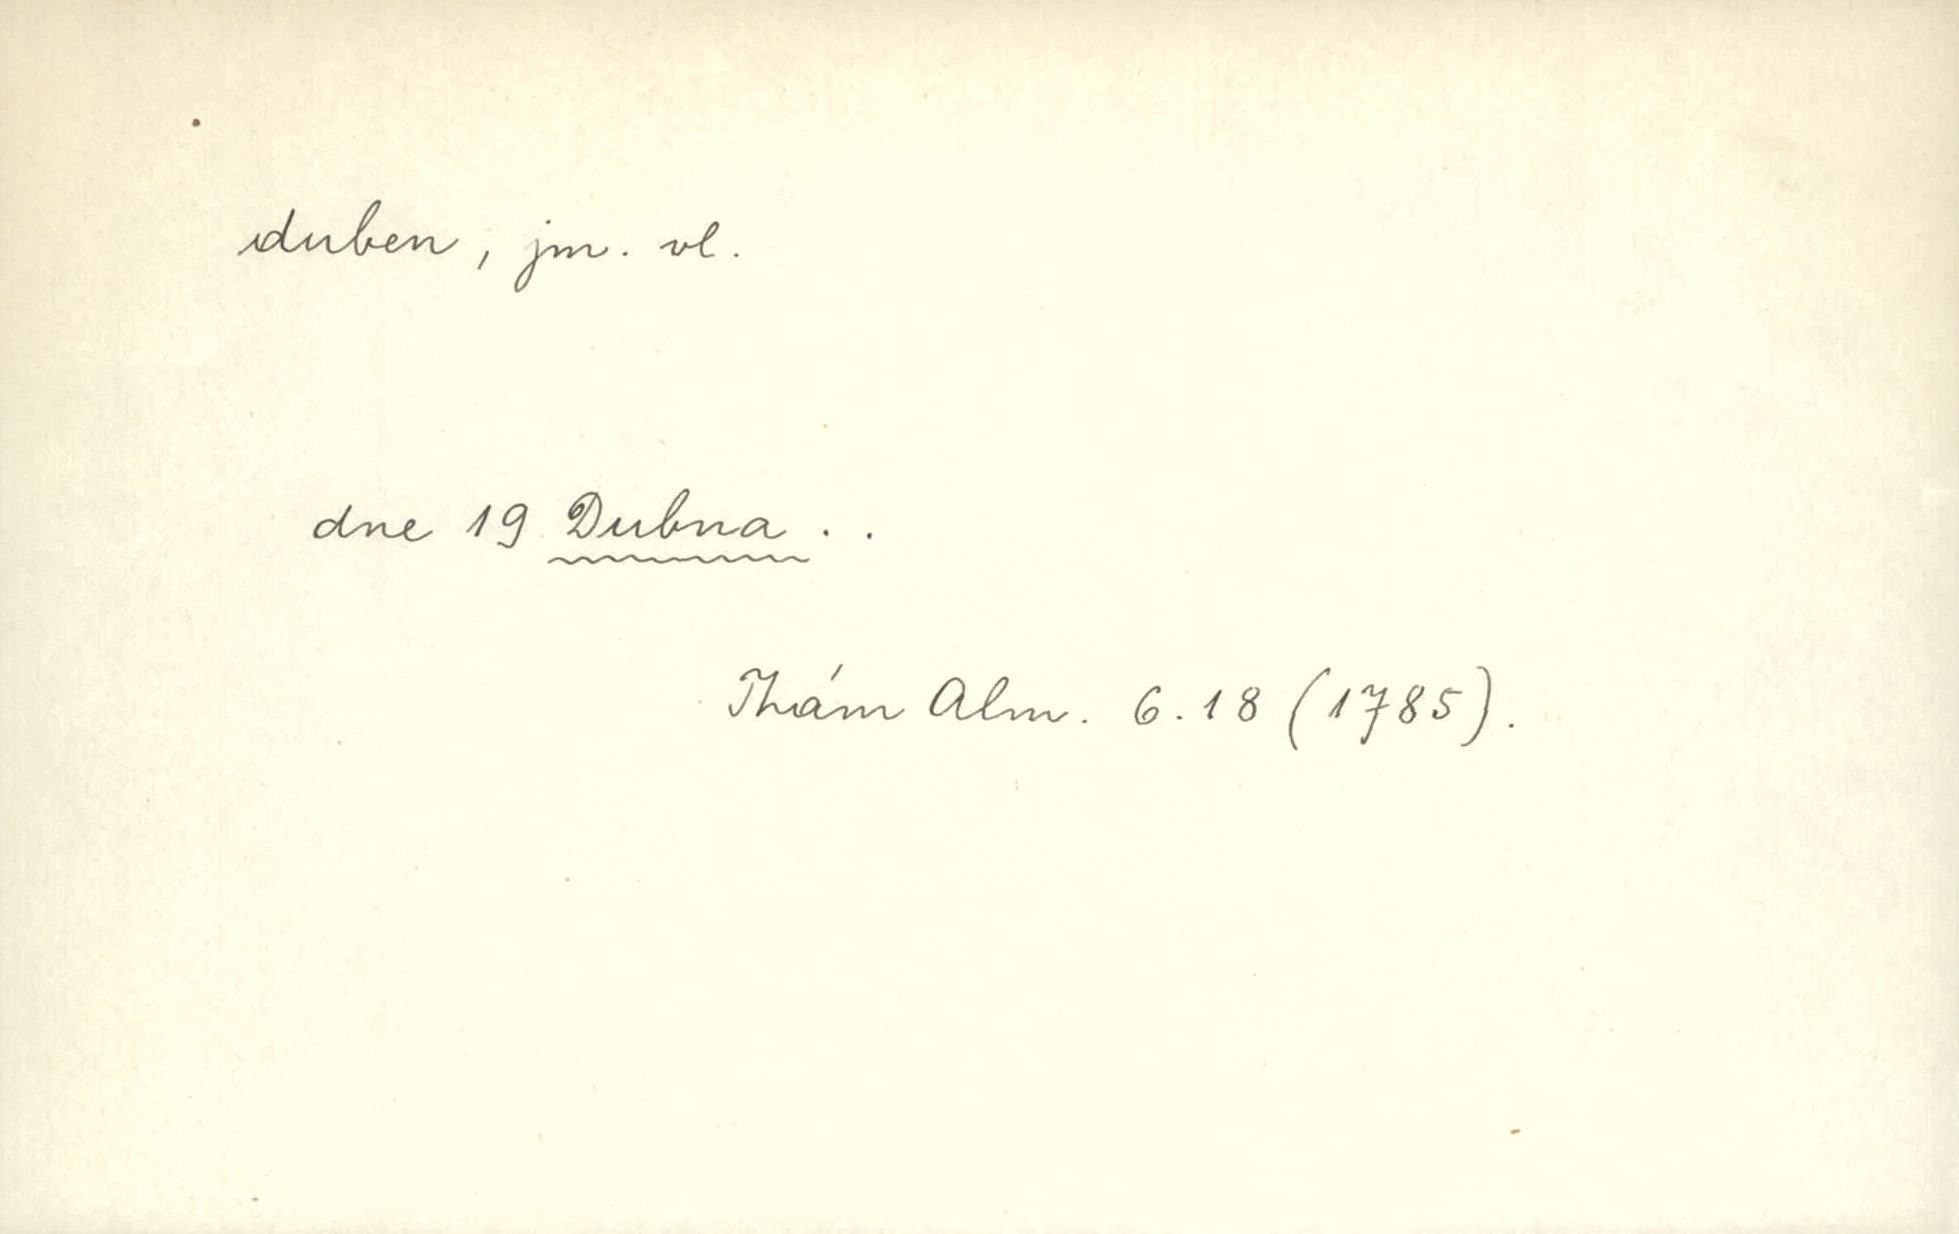 duben, jm. vl.
dne 19 Dubna . .
Thám Alm. 6.18 (1785).